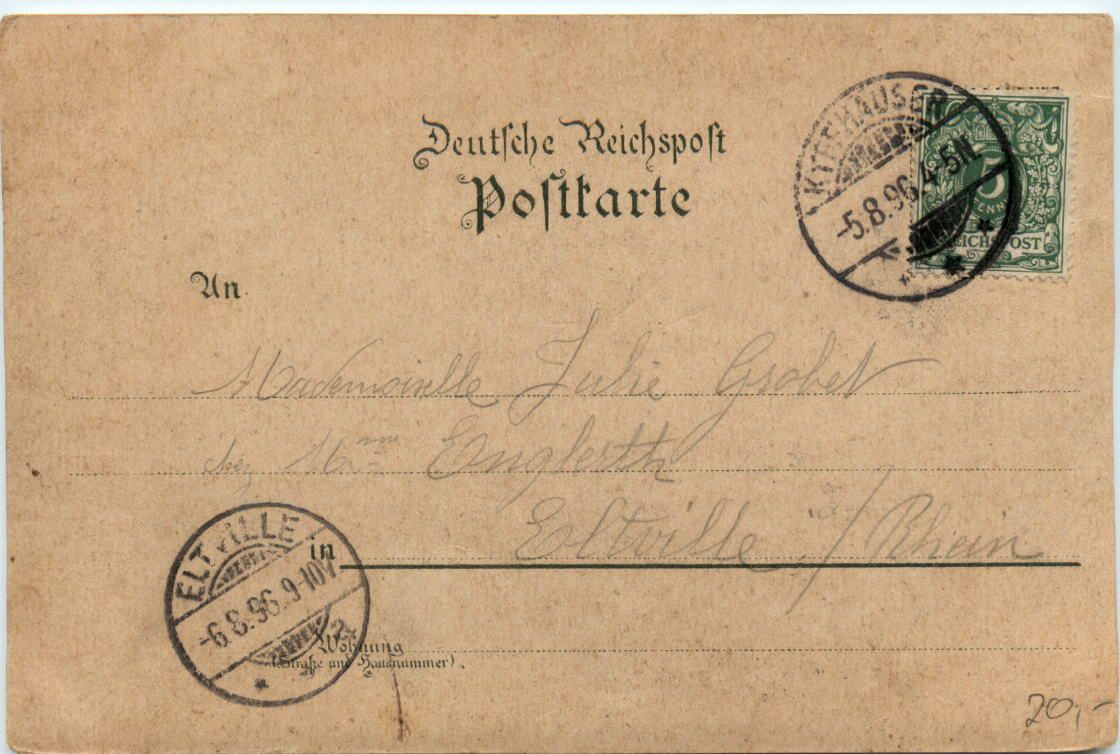 Deutsche Reichspost
Postkarte
KYFFHÄUSER
-5.8.96.4-5N.
5
REICHSPOST
An
Mademoiselle Julie Grobet
chez Mme Englerth
Eltville / Rhein
in
ELTVILLE
-6.8.96.9-10V
Wohnung
(Straße und Hausnummer).
20,-